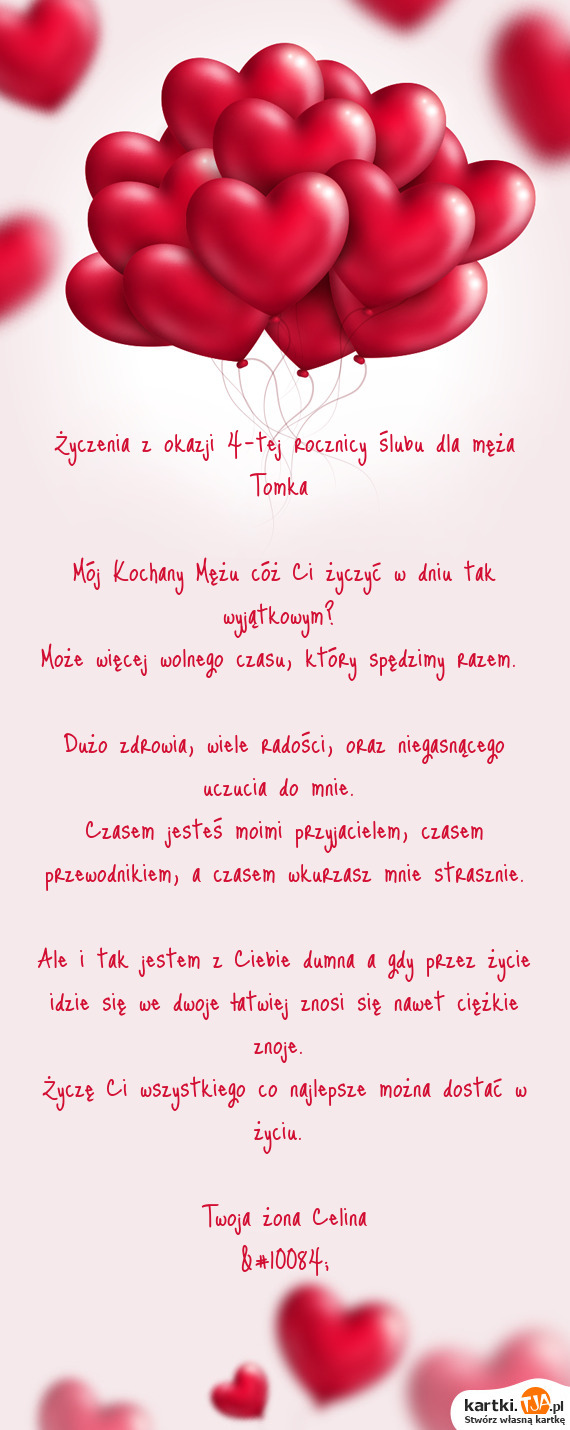 Życzenia z okazji 4-tej rocznicy ślubu dla męża
Tomka
Mój Kochany Mężu cóż Ci życzyć w dniu tak
wyjątkowym?
Może więcej wolnego czasu, który spędzimy razem.
Dużo zdrowia, wiele radości, oraz niegasnącego
uczucia do mnie.
Czasem jesteś moimi przyjacielem, czasem
przewodnikiem, a czasem wkurzasz mnie strasznie.
Ale i tak jestem z Ciebie dumna a gdy przez życie
idzie się we dwoje łatwiej znosi się nawet ciężkie
znoje.
Życzę Ci wszystkiego co najlepsze można dostać w
życiu.
Twoja żona Celina
&#10084;
kartki.TJA.pl
Stwórz własną kartkę